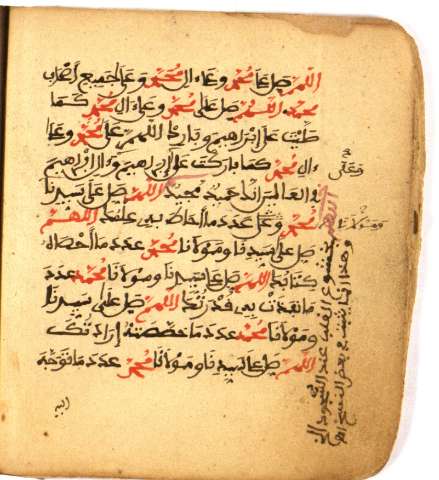 اللهم صل على محمد وعلى ءال محمد وعلى جميع أصحاب
محمد اللهم صل على محمد وعلى ءال محمد كما
صليت على إبراهيم وبارك اللهم على محمد وعلى
ءال محمد كما باركت على إبراهيم وءال إبراهيم
في العالمين إنك حميد مجيد اللهم صل على سيدنا
محمد وعلى عدد ما أحاط به علمك اللهم
صل على سيدنا ومولانا محمد عدد ما أحصاه
كتابك اللهم صل على سيدنا ومولانا محمد عدد
ما نفذت به قدرتك اللهم صل على سيدنا
ومولانا محمد عدد ما خصصته إرادتك
اللهم صل على سيدنا ومولانا محمد عدد ما توجه
إليه
وعلى
ومولانا